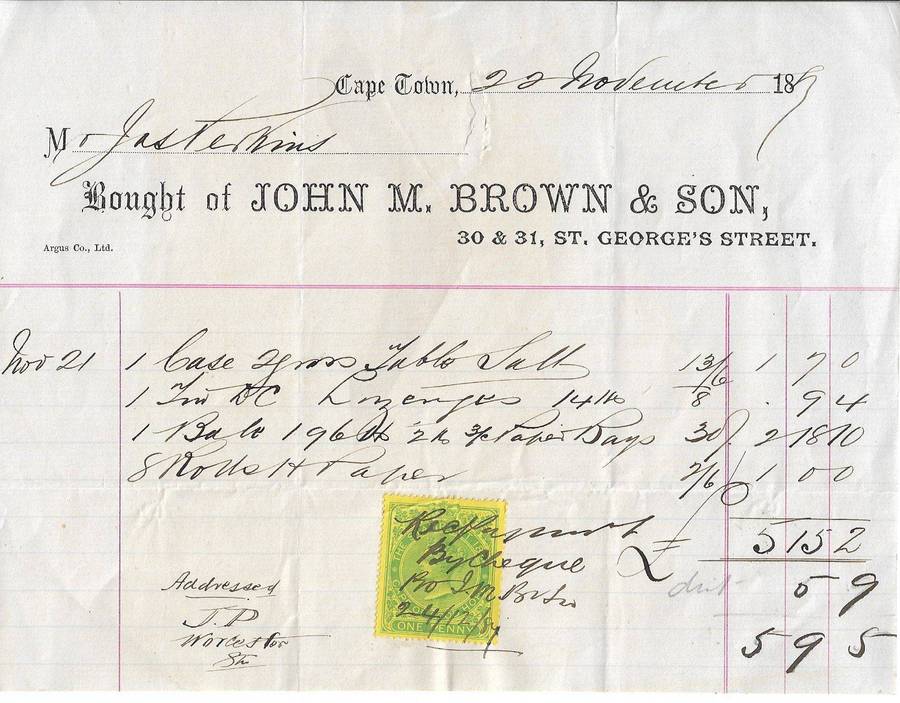 Cape Town, 22 November 189
Mr Jas Perkins
Bought of JOHN M. BROWN & SON,
30 & 31, ST. GEORGE'S STREET.
Argus Co., Ltd.
Nov 21 1 Case 2 gross Table Salt 13/6 1 7 0
1 Tin DC Lozenges 14 lb /8 . 9 4
1 Bale 196 lb 2 lb Paper Bags 30/ 2 18 10
8 Rolls H Paper 2/6 1 0 0
£ 5 15 2
5 9
5 9 5
Rec Payment
By Cheque
Pro J.M.B & Son
24/12/
ONE PENNY
Addressed
J.P
Worcester
Stn